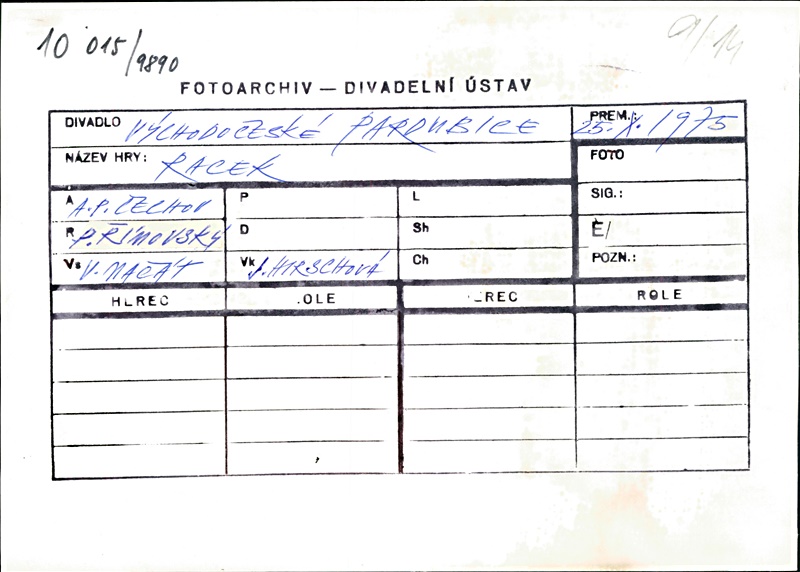 10 015/9890
9/14
FOTOARCHIV — DIVADELNÍ ÚSTAV
DIVADLO VÝCHODOČESKÉ PARDUBICE
PREM.: 25. X. 1975
NÁZEV HRY: RACEK
FOTO
A A.P. ČECHOV
P
L
SIG.:
R P. ŘÍMOVSKÝ
D
Sh
Č/
Vs V. MAČÁT
Vk J. HIRSCHOVÁ
Ch
POZN.:
HEREC ROLE HEREC ROLE